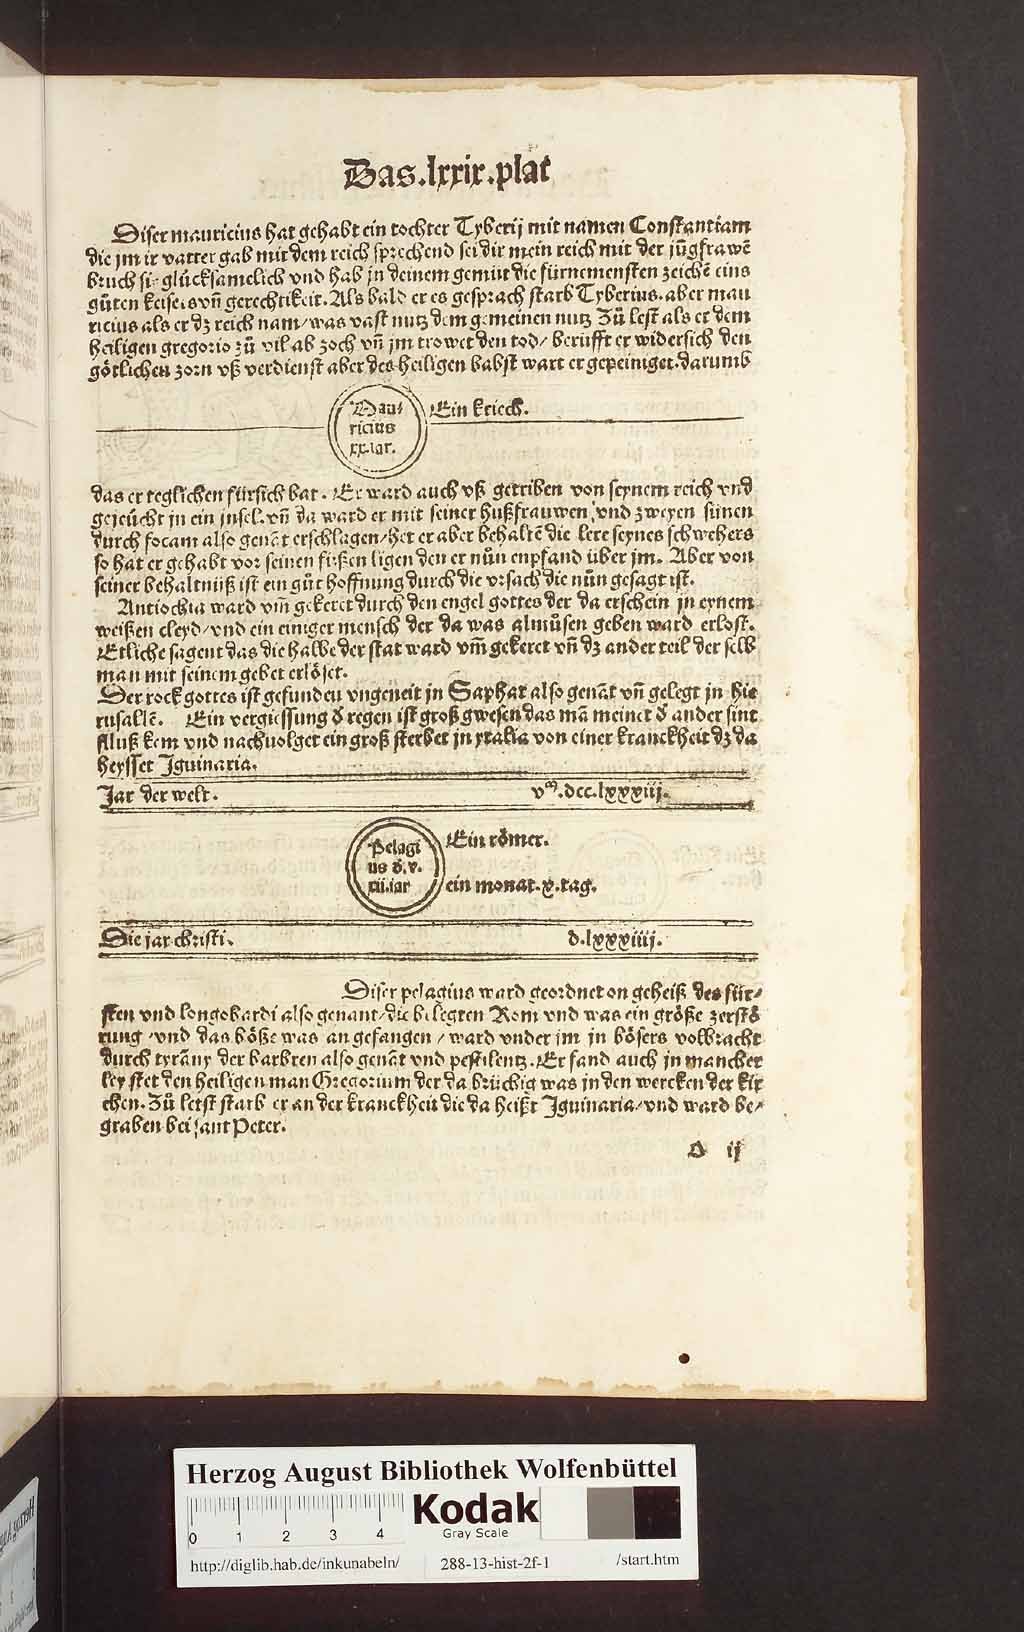 Das.lxxix.plat
Diser mauricius hat gehabt ein tochter Tyberij mit namen Constantiam
die jm ir vatter gab mit dem reich sprechend sei dir mein reich mit der jūgfrawē
bruch sie glücksamelich vnd hab jn deinem gemüt die fürnemensten zeichē eins
gůten keisers vñ gerechtikeit. Als bald er es gesprach starb Tyberius. aber mau
ricius als er dz reich nam/was vast nutz dem gemeinen nutz Zů lest als er dem
heiligen gregorio zů vil ab zoch vñ jm trowet den tod/ berůfft er widersich den
götlichen zorn vß verdienst aber des heiligen babst wart er gepeiniget. darumb
Mau⸗
ricius
xx.iar.
Ein kriech.
das er teglichen fürsich bat. Er ward auch vß getriben von seynem reich vnd
gejeücht jn ein jnsel. vñ da ward er mit seiner hußfrauwen vnd zweyen sünen
durch focam also genāt erschlagen/het er aber behaltē die lere seynes schwehers
so hat er gehabt vor seinen füßen ligen den er nůn enpfand über jm. Aber von
seiner behaltnüß ist ein gůt hoffnung durch die vrsach die nůn gesagt ist.
Antiochia ward vm̄ gekeret durch den engel gottes der da erschein jn eynem
weißen cleyd/vnd ein einiger mensch der da was almůsen geben ward erlost.
Etliche sagent das die halbe der stat ward vm̄ gekeret vñ dz ander teil der selb
man mit seinem gebet erlöset.
Der rock gottes ist gefunden vngeneit jn Saphat also genāt vñ gelegt jn hie
rusallē. Ein vergiessung d̄ regen ist groß gwesen das mā meinet d̄ ander sint
fluß kem vnd nachuolget ein groß sterbet jn ytalia von einer kranckheit dz da
heysset Iguinaria.
Jar der welt. vᵐ.dcc.lxxxiij.
Pelagi
us d̄.v.
xii.iar
Ein römer.
ein monat.x.tag.
Die jar christi. d.lxxxiiij.
Diser pelagius ward geordnet on geheiß des für⸗
sten vnd longobardi also genant/die belegten Rom vnd was ein größe zerstö
rung/vnd das böße was angefangen/ward vnder jm in bösers volbracht
durch tyrāny der barbren also genāt vnd pestilentz. Er fand auch jn mancher
ley stet den heiligen man Gregorium der da brüchig was in den wercken der kir
chen. Zů letst starb er an der kranckheit die da heißt Iguinaria/vnd ward be⸗
graben bei sant Peter.
O ij
Herzog August Bibliothek Wolfenbüttel
0 1 2 3 4
Kodak
Gray Scale
http://diglib.hab.de/inkunabeln/ 288-13-hist-2f-1 /start.htm